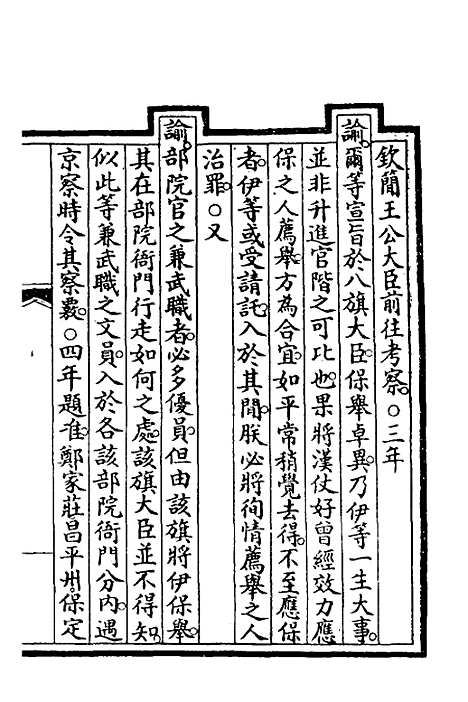 欽簡王公大臣前往考察。○三年
諭。爾等宣旨於八旗大臣。保舉卓異。乃伊等一生大事。
並非升進官階之可比也。果將漢仗好曾經效力應
保之人薦舉。方為合宜。如平常稍覺去得。不至應保
者。伊等或受請託。入於其間。朕必將徇情薦舉之人
治罪。○又
諭。部院官之兼武職者。必多優員。但由該旗將伊保舉。
其在部院衙門行走如何之處。該旗大臣並不得知。
似此等兼武職之文員。入於各該部院衙門分內。遇
京察時令其察覈。○四年題准。鄭家莊昌平州。保定